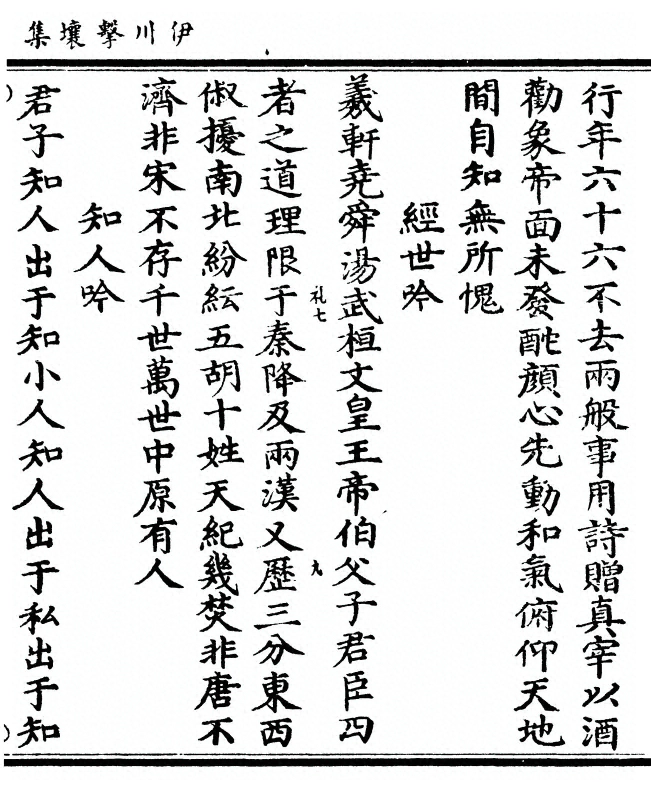 伊川擊壤集
行年六十六不去兩般事用詩贈真宰以酒
勸象帝面未發酡顏心先動和氣俯仰天地
間自知無所愧
經世吟
羲軒堯舜湯武桓文皇王帝伯父子君臣四
者之道理限于秦降及兩漢又歷三分東西
俶擾南北紛紜五胡十姓天紀幾焚非唐不
濟非宋不存千世萬世中原有人
知人吟
君子知人出于知小人知人出于私出于知
礼七
九